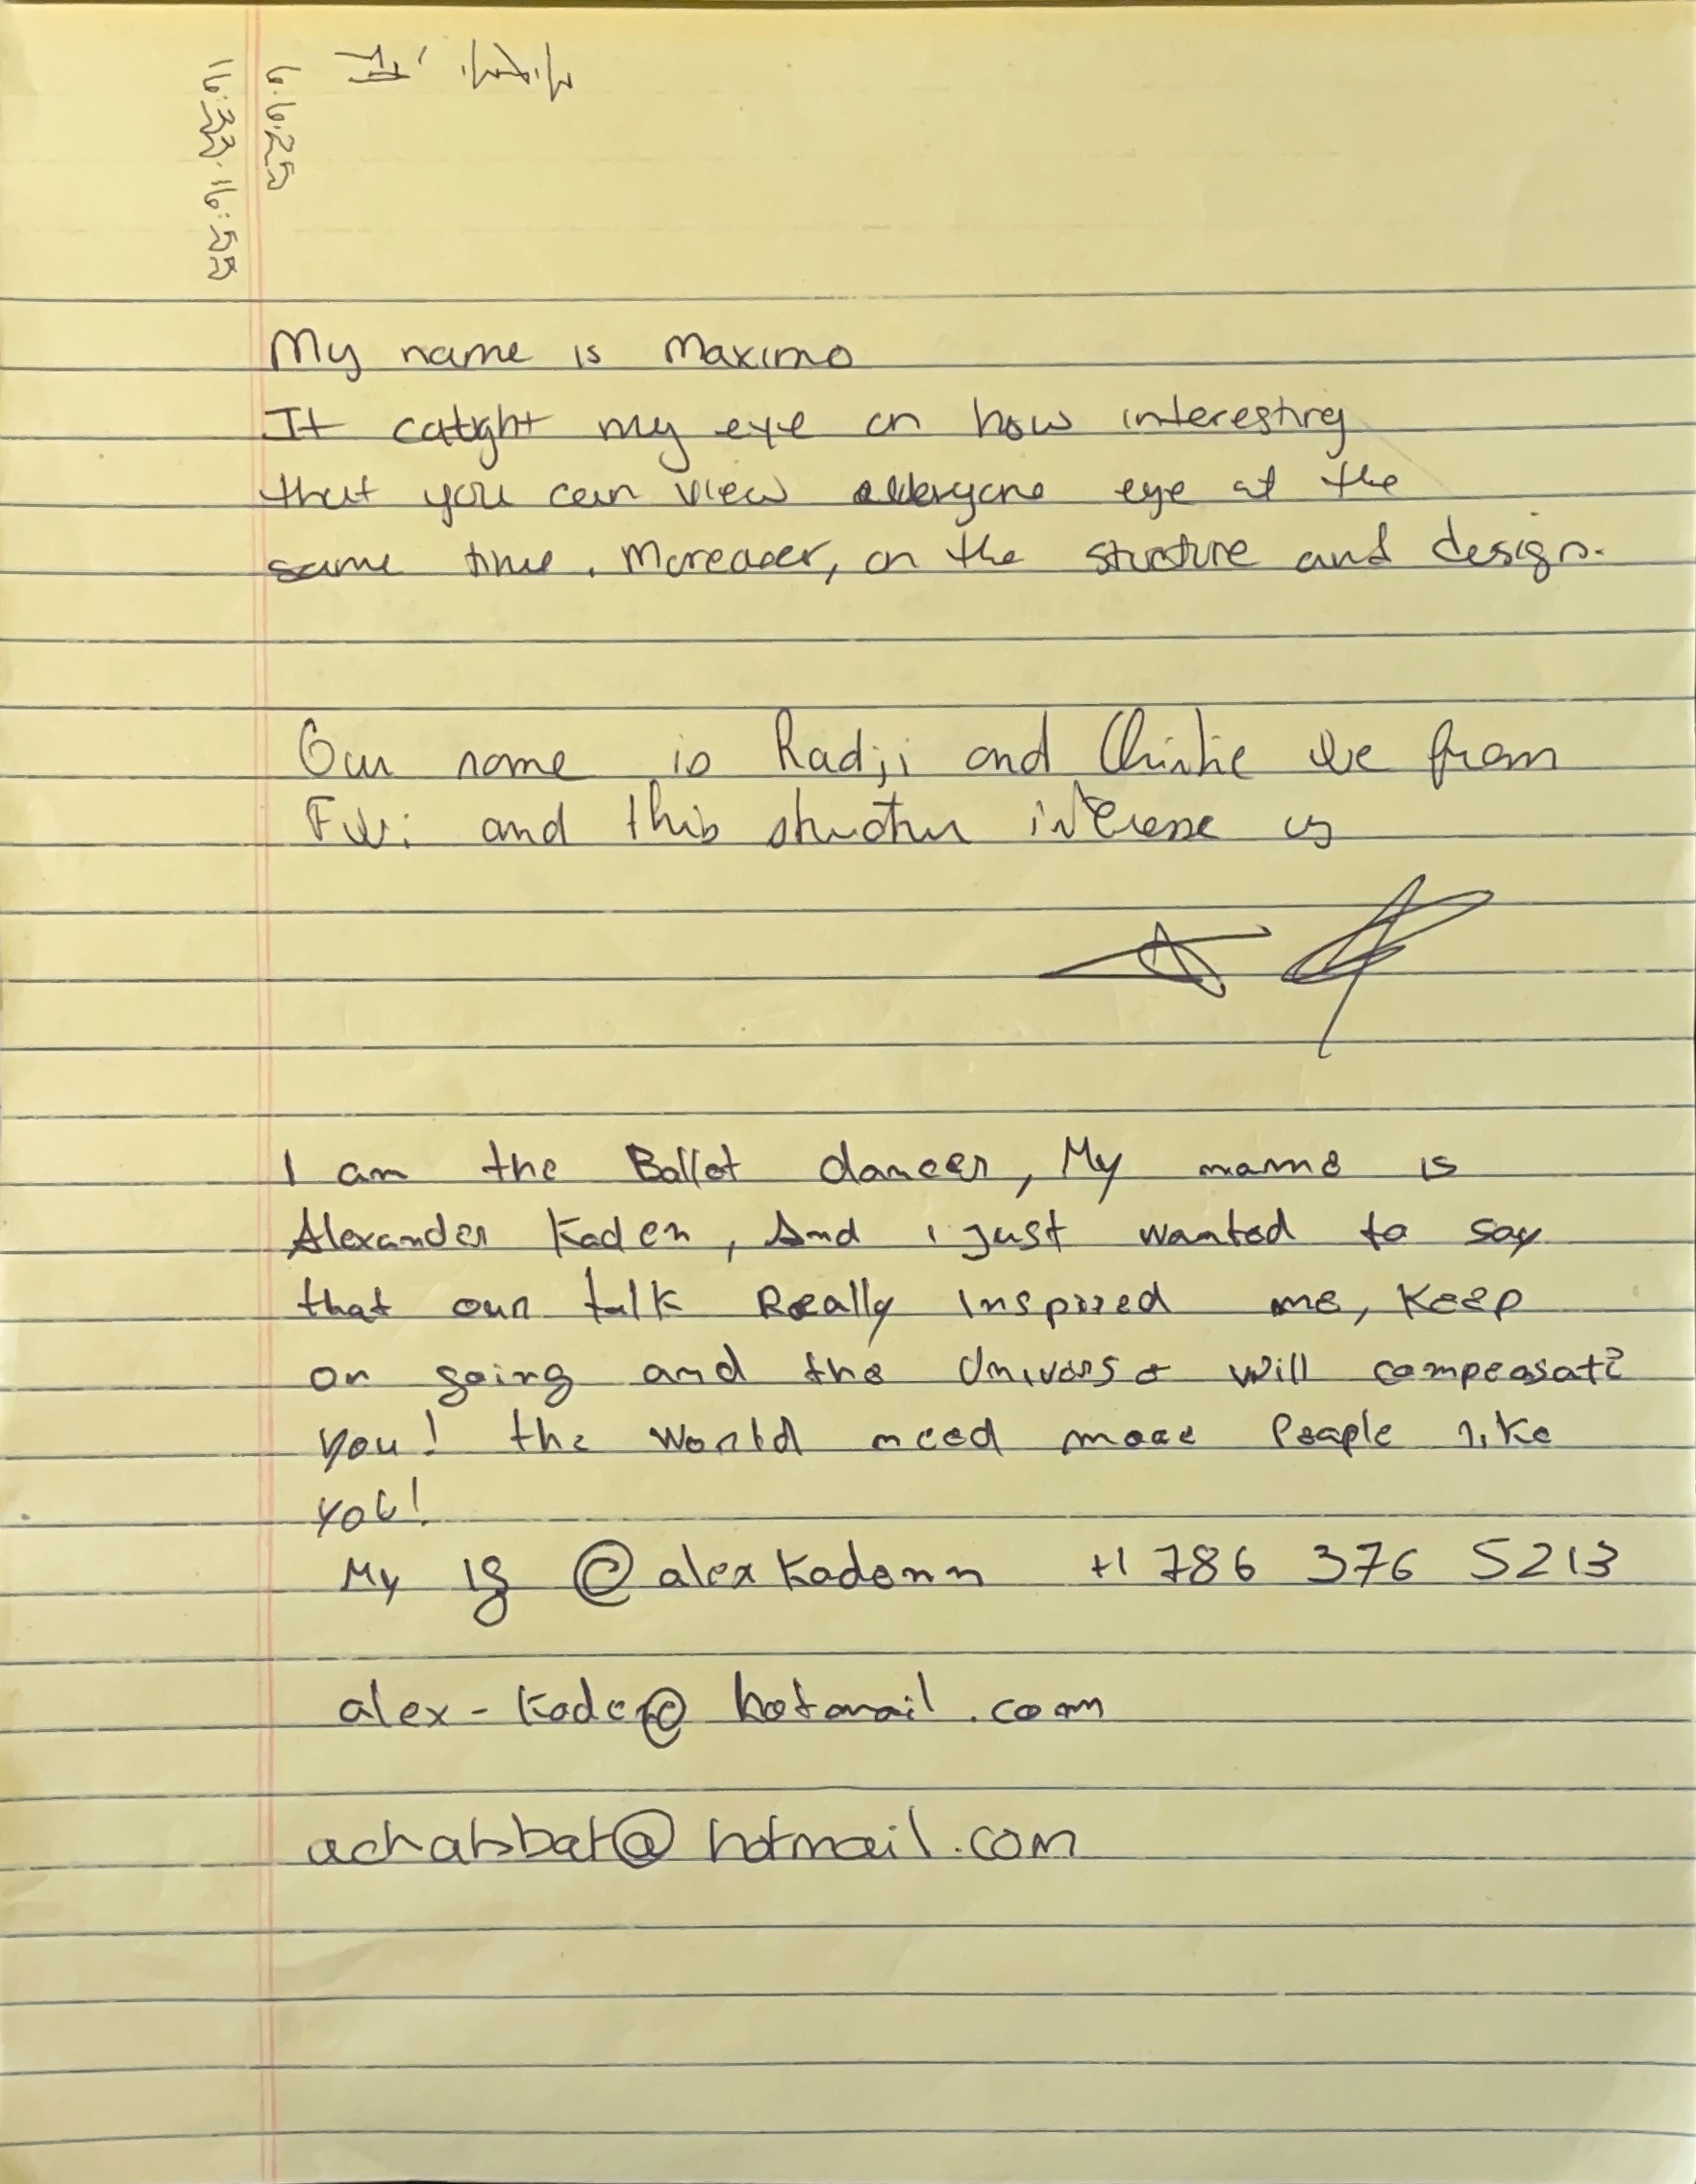 6.6.25
16:33. 16:55
My name is Maximo
It catght my eye on how interesting
that you can view everyone eye at the
same time. Moreover, on the structure and design.
Our name is Radji and We from
and this structur interesse us
I am the Ballet dancer, My name is
Alexander Kaden, And i just wanted to say
that our talk Really Inspired me, Keep
on going and the Universe will compensate
you! the World need more People like
you!
My ig @alexkadenn +1 786 376 5213
alex-kaden@hotmail.com
@hotmail.com